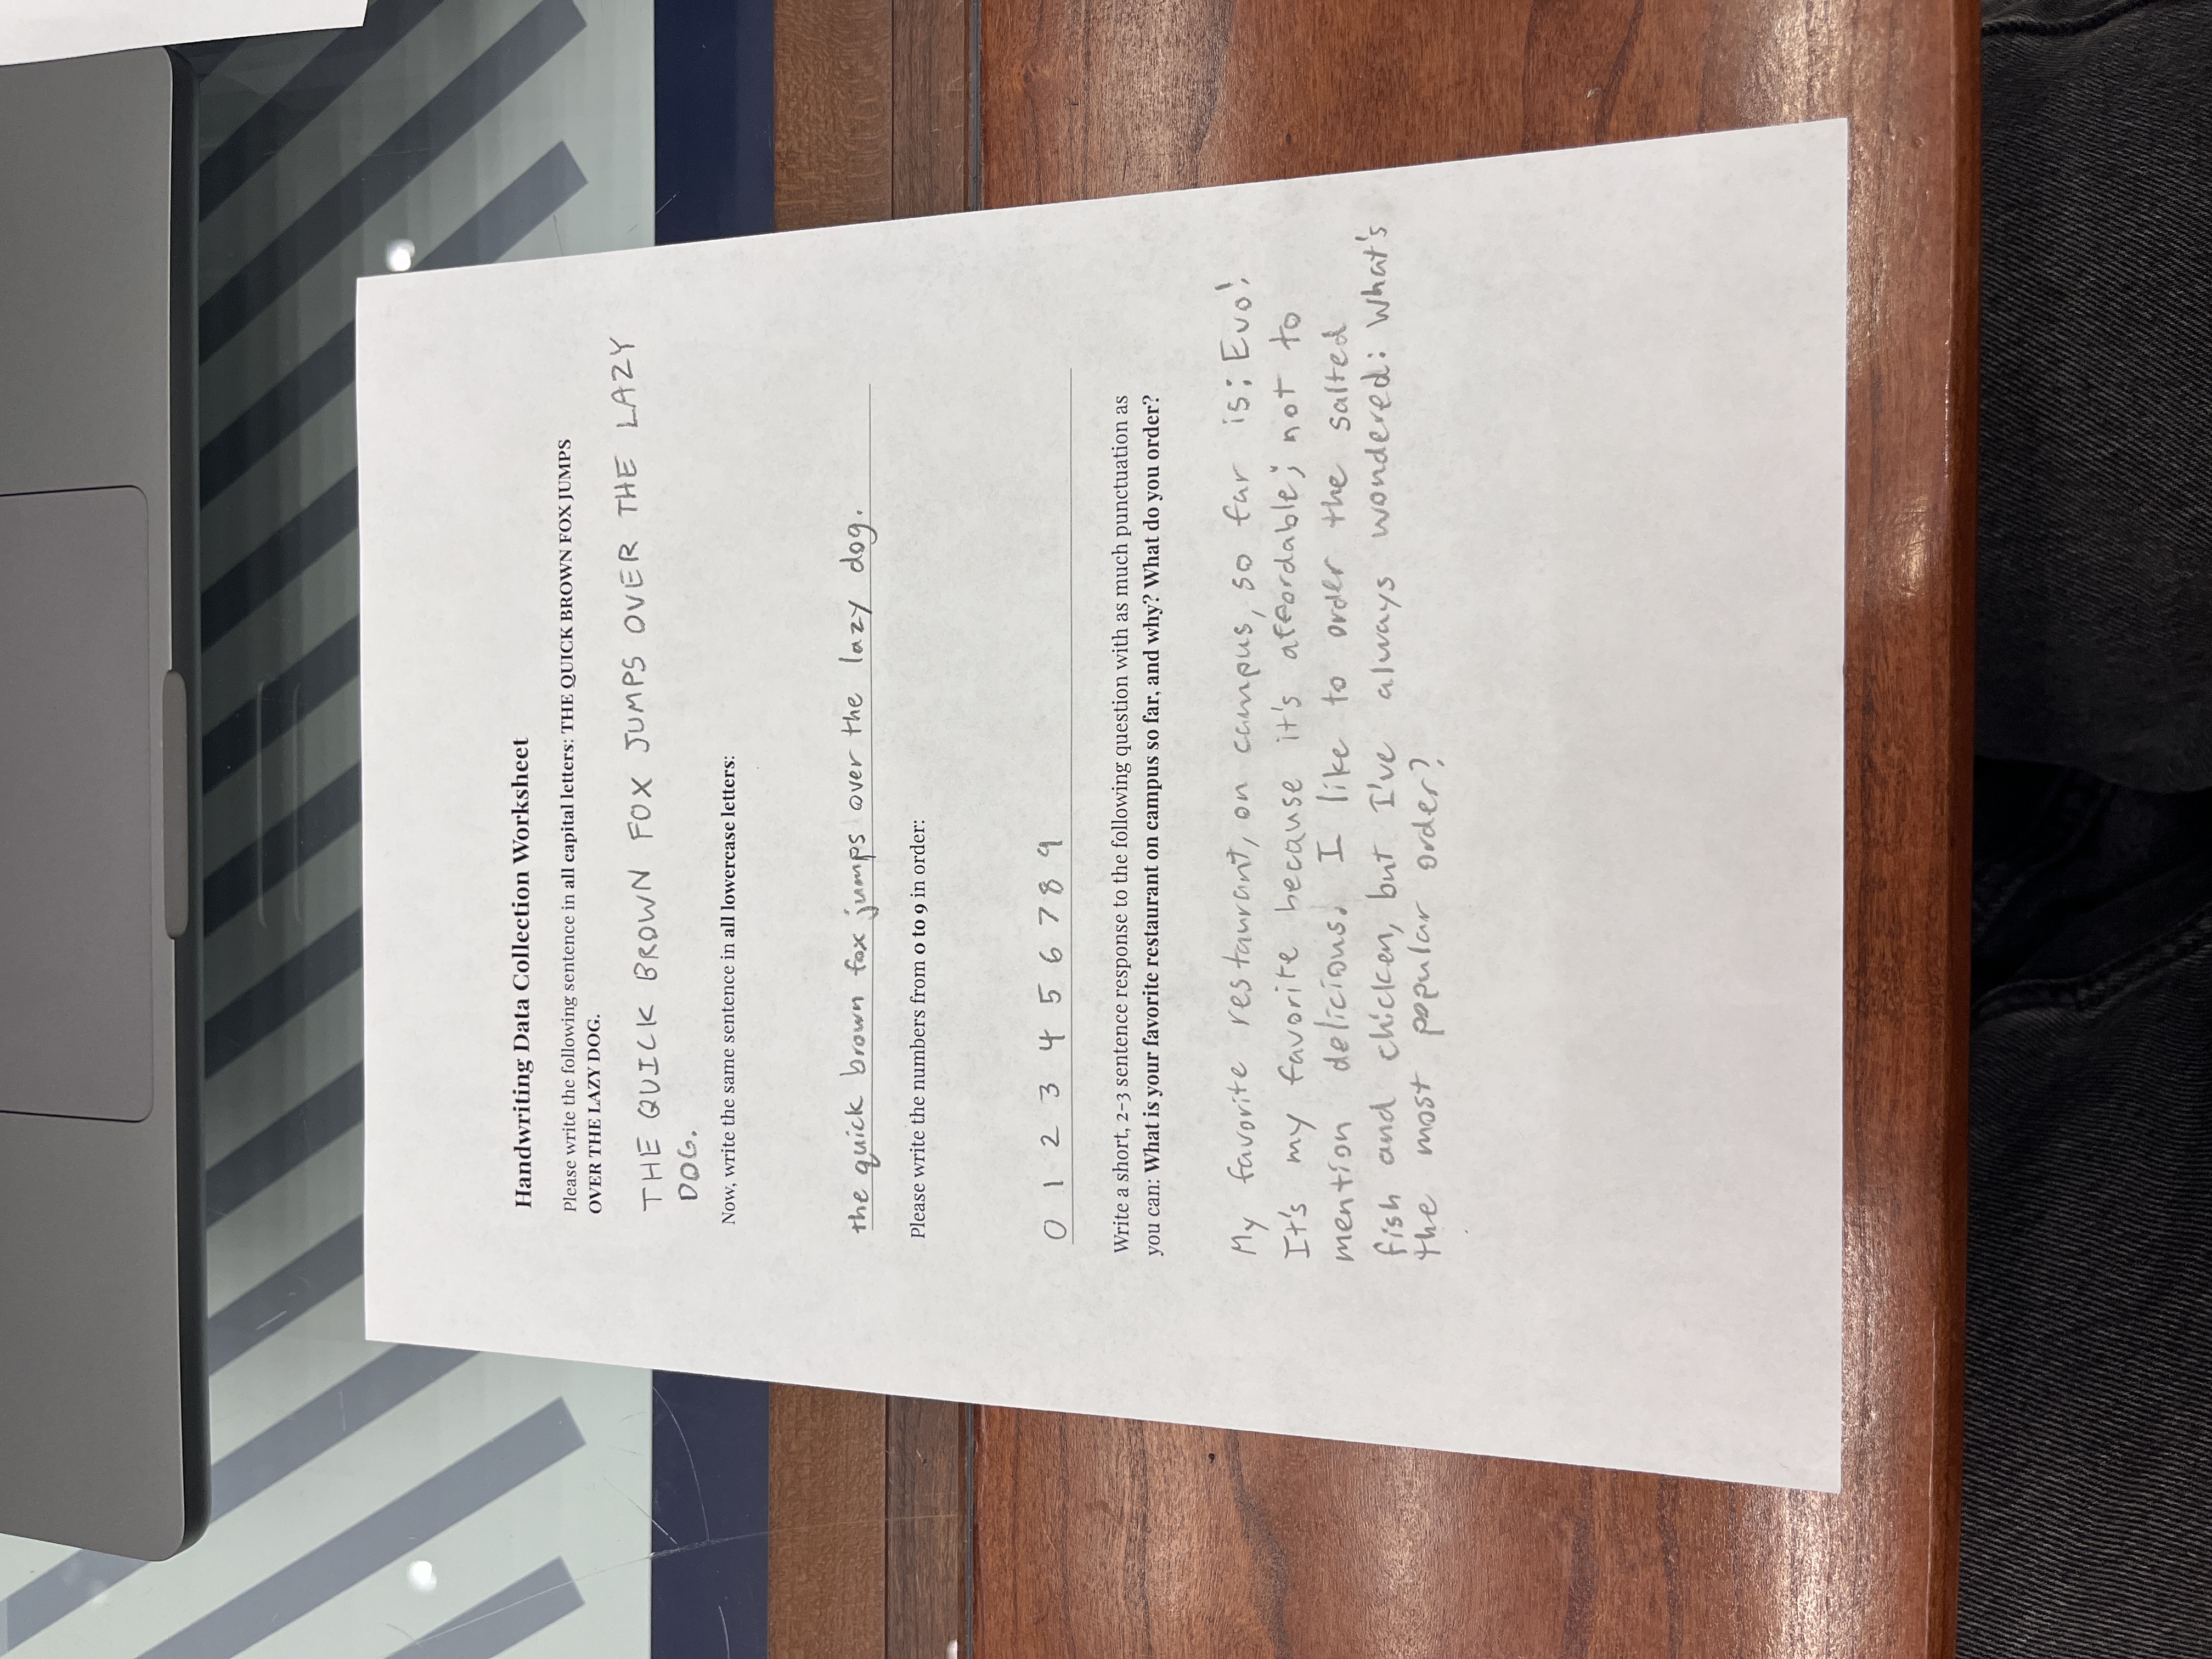 Handwriting Data Collection Worksheet
Please write the following sentence in all capital letters: THE QUICK BROWN FOX JUMPS
OVER THE LAZY DOG.
THE QUICK BROWN FOX JUMPS OVER THE LAZY
DOG.
Now, write the same sentence in all lowercase letters:
the quick brown fox jumps over the lazy dog.
Please write the numbers from 0 to 9 in order:
0 1 2 3 4 5 6 7 8 9
Write a short, 2-3 sentence response to the following question with as much punctuation as
you can: What is your favorite restaurant on campus so far, and why? What do you order?
My favorite restaurant, on campus, so far is: Evo!
It's my favorite because it's affordable; not to
mention delicious. I like to order the salted
fish and chicken, but I've always wondered: What's
the most popular order?